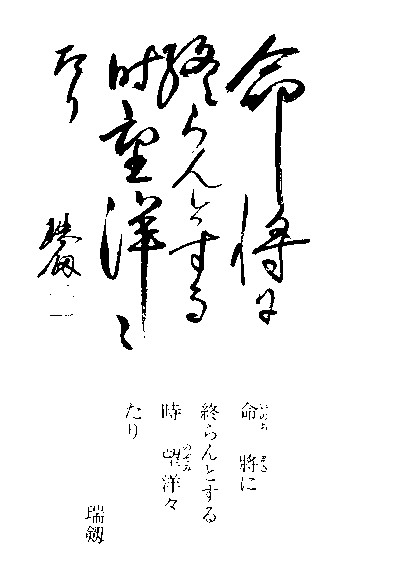 命将に
終らんとする
時望洋々
たり
瑞剱
命　將に
終らんとする
時　望洋々
たり
瑞剱